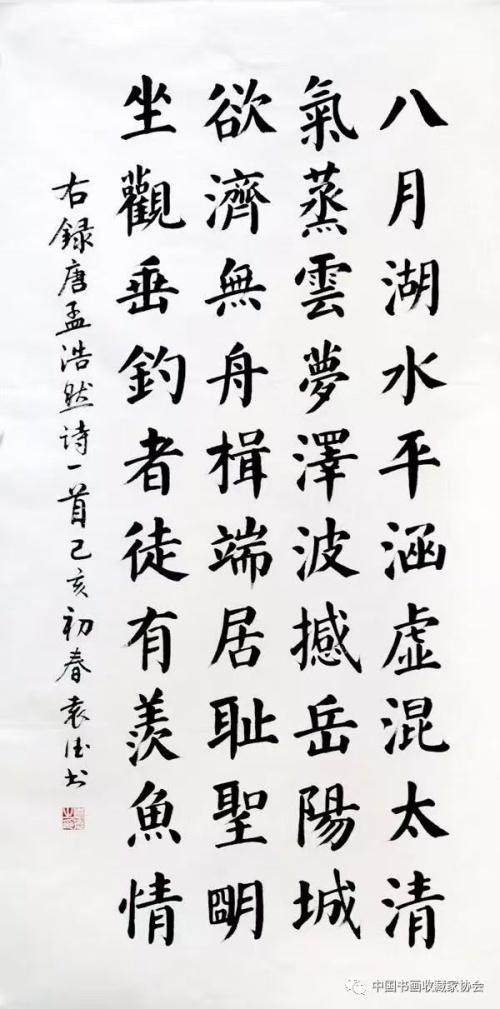 八月湖水平涵虚混太清
氣蒸雲夢澤波撼岳陽城
欲濟無舟楫端居耻聖明
坐觀垂釣者徒有羨魚情
右録唐孟浩然诗一首己亥初春袁德书
中国书画收藏家协会